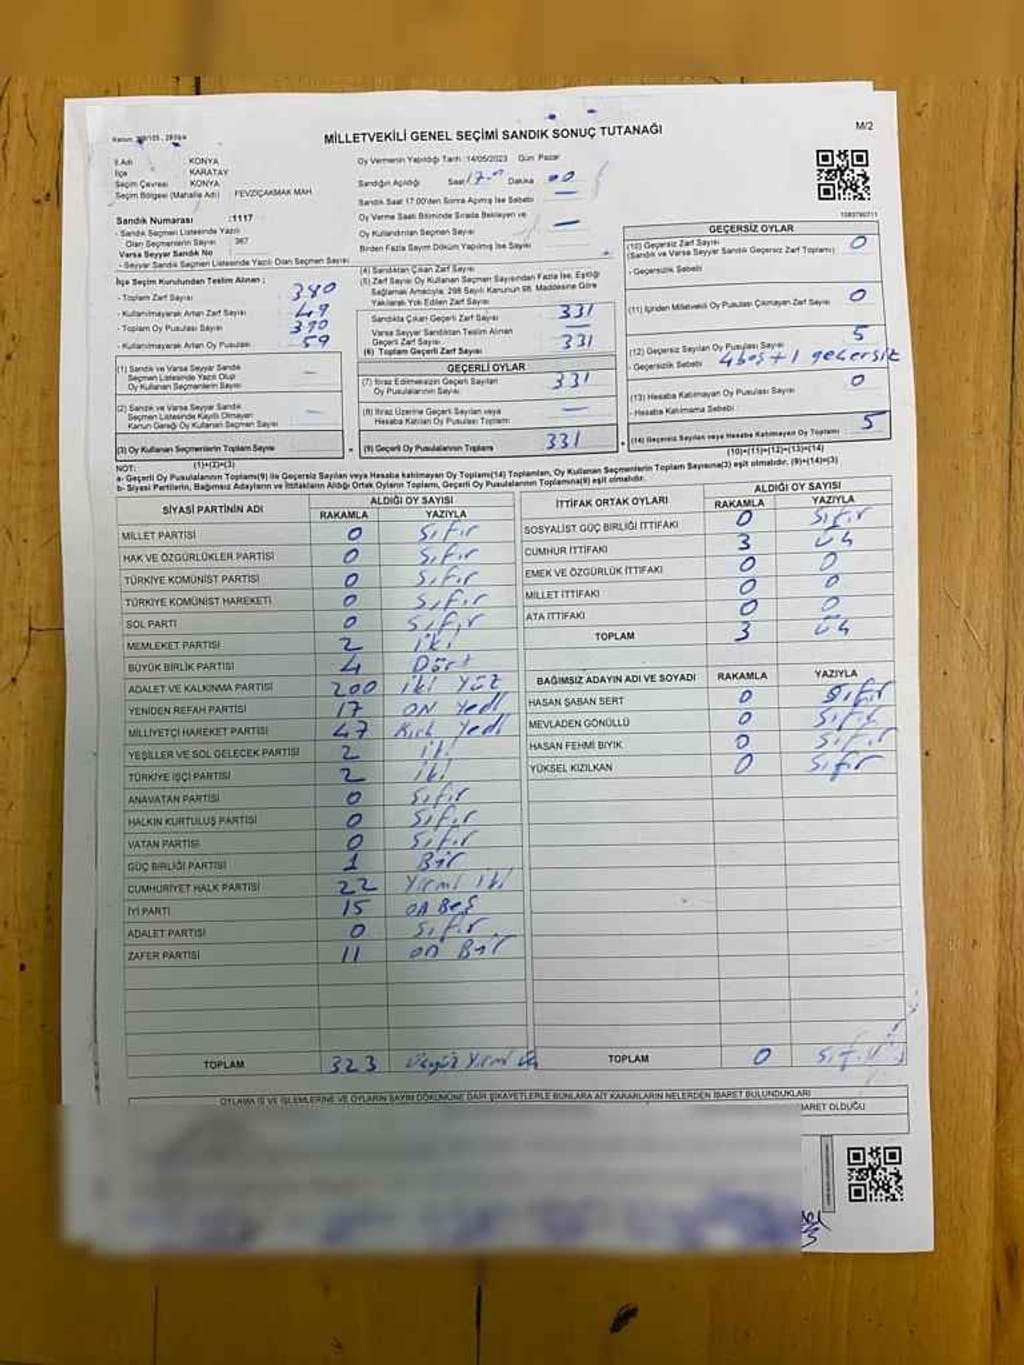 MİLLETVEKİLİ GENEL SEÇİMİ SANDIK SONUÇ TUTANAĞI
M/2
İl Adı : KONYA
İlçe : KARATAY
Seçim Çevresi : KONYA
Seçim Bölgesi (Mahalle Adı) : FEVZİÇAKMAK MAH
Sandık Numarası :1117
- Sandık Seçmen Listesinde Yazılı
Olan Seçmenlerin Sayısı : 367
Varsa Seyyar Sandık No :
- Seyyar Sandık Seçmen Listesinde Yazılı Olan Seçmen Sayısı
Oy Vermenin Yapıldığı Tarih :14/05/2023 Gün: Pazar
Sandığın Açıldığı Saat 17.00 Dakika 00
Sandık Saat 17.00'den Sonra Açılmış İse Sebebi :
Oy Verme Saati Bitiminde Sırada Bekleyen ve
Oy Kullandırılan Seçmen Sayısı
Birden Fazla Sayım Döküm Yapılmış İse Sayısı :
İlçe Seçim Kurulundan Teslim Alınan ;
- Toplam Zarf Sayısı : 380
- Kullanılmayarak Artan Zarf Sayısı : 49
- Toplam Oy Pusulası Sayısı : 390
- Kullanılmayarak Artan Oy Pusulası : 59
(1) Sandık ve Varsa Seyyar Sandık
Seçmen Listesinde Yazılı Olup
Oy Kullanan Seçmenlerin Sayısı —
(2) Sandık ve Varsa Seyyar Sandık
Seçmen Listesinde Kayıtlı Olmayan
Kanun Gereği Oy Kullanan Seçmen Sayısı —
(3) Oy Kullanan Seçmenlerin Toplam Sayısı
(1)+(2)=(3)
(4) Sandıktan Çıkan Zarf Sayısı
(5) Zarf Sayısı Oy Kullanan Seçmen Sayısından Fazla İse, Eşitliği
Sağlamak Amacıyla; 298 Sayılı Kanunun 98. Maddesine Göre
Yakılarak Yok Edilen Zarf Sayısı :
Sandıkta Çıkan Geçerli Zarf Sayısı 331
Varsa Seyyar Sandıktan Teslim Alınan
Geçerli Zarf Sayısı —
(6) Toplam Geçerli Zarf Sayısı 331
GEÇERLİ OYLAR
(7) İtiraz Edilmeksizin Geçerli Sayılan
Oy Pusulalarının Sayısı: 331
(8) İtiraz Üzerine Geçerli Sayılan veya
Hesaba Katılan Oy Pusulası Toplamı —
(9) Geçerli Oy Pusulalarının Toplamı 331
GEÇERSİZ OYLAR
(10) Geçersiz Zarf Sayısı 0
(Sandık ve Varsa Seyyar Sandık Geçersiz Zarf Toplamı)
- Geçersizlik Sebebi
(11) İçinden Milletvekili Oy Pusulası Çıkmayan Zarf Sayısı 0
(12) Geçersiz Sayılan Oy Pusulası Sayısı 5
- Geçersizlik Sebebi: 4 boş + 1 geçersiz
(13) Hesaba Katılmayan Oy Pusulası Sayısı 0
- Hesaba Katılmama Sebebi :
(14) Geçersiz Sayılan veya Hesaba Katılmayan Oy Toplamı 5
(10)+(11)+(12)+(13)=(14)
NOT:
a- Geçerli Oy Pusulalarının Toplamı(9) ile Geçersiz Sayılan veya Hesaba katılmayan Oy Toplamı(14) Toplamları, Oy Kullanan Seçmenlerin Toplam Sayısına(3) eşit olmalıdır. (9)+(14)=(3)
b- Siyasi Partilerin, Bağımsız Adayların ve İttifakların Aldığı Ortak Oyların Toplamı, Geçerli Oy Pusulalarının Toplamına(9) eşit olmalıdır.
SİYASİ PARTİNİN ADI ALDIĞI OY SAYISI
RAKAMLA YAZIYLA
MİLLET PARTİSİ 0 Sıfır
HAK VE ÖZGÜRLÜKLER PARTİSİ 0 Sıfır
TÜRKİYE KOMÜNİST PARTİSİ 0 Sıfır
TÜRKİYE KOMÜNİST HAREKETİ 0 Sıfır
SOL PARTİ 0 Sıfır
MEMLEKET PARTİSİ 2 iki
BÜYÜK BİRLİK PARTİSİ 4 Dört
ADALET VE KALKINMA PARTİSİ 200 iki Yüz
YENİDEN REFAH PARTİSİ 17 ON Yedi
MİLLİYETÇİ HAREKET PARTİSİ 47 Kırk Yedi
YEŞİLLER VE SOL GELECEK PARTİSİ 2 iki
TÜRKİYE İŞÇİ PARTİSİ 2 iki
ANAVATAN PARTİSİ 0 Sıfır
HALKIN KURTULUŞ PARTİSİ 0 Sıfır
VATAN PARTİSİ 0 Sıfır
GÜÇ BİRLİĞİ PARTİSİ 1 Bir
CUMHURİYET HALK PARTİSİ 22 Yirmi iki
İYİ PARTİ 15 on Beş
ADALET PARTİSİ 0 Sıfır
ZAFER PARTİSİ 11 on Bir
TOPLAM 323 üçyüz Yirmi üç
İTTİFAK ORTAK OYLARI ALDIĞI OY SAYISI
RAKAMLA YAZIYLA
SOSYALİST GÜÇ BİRLİĞİ İTTİFAKI 0 Sıfır
CUMHUR İTTİFAKI 3 üç
EMEK VE ÖZGÜRLÜK İTTİFAKI 0 0
MİLLET İTTİFAKI 0 0
ATA İTTİFAKI 0 0
TOPLAM 3 üç
BAĞIMSIZ ADAYIN ADI VE SOYADI RAKAMLA YAZIYLA
HASAN ŞABAN SERT 0 Sıfır
MEVLADEN GÖNÜLLÜ 0 Sıfır
HASAN FEHMİ BIYIK 0 Sıfır
YÜKSEL KIZILKAN 0 Sıfır
TOPLAM 0 Sıfır
OYLAMA İŞ VE İŞLEMLERİNE VE OYLARIN SAYIM DÖKÜMÜNE DAİR ŞİKAYETLERLE BUNLARA AİT KARARLARIN NELERDEN İBARET BULUNDUKLARI
İBARET OLDUĞU